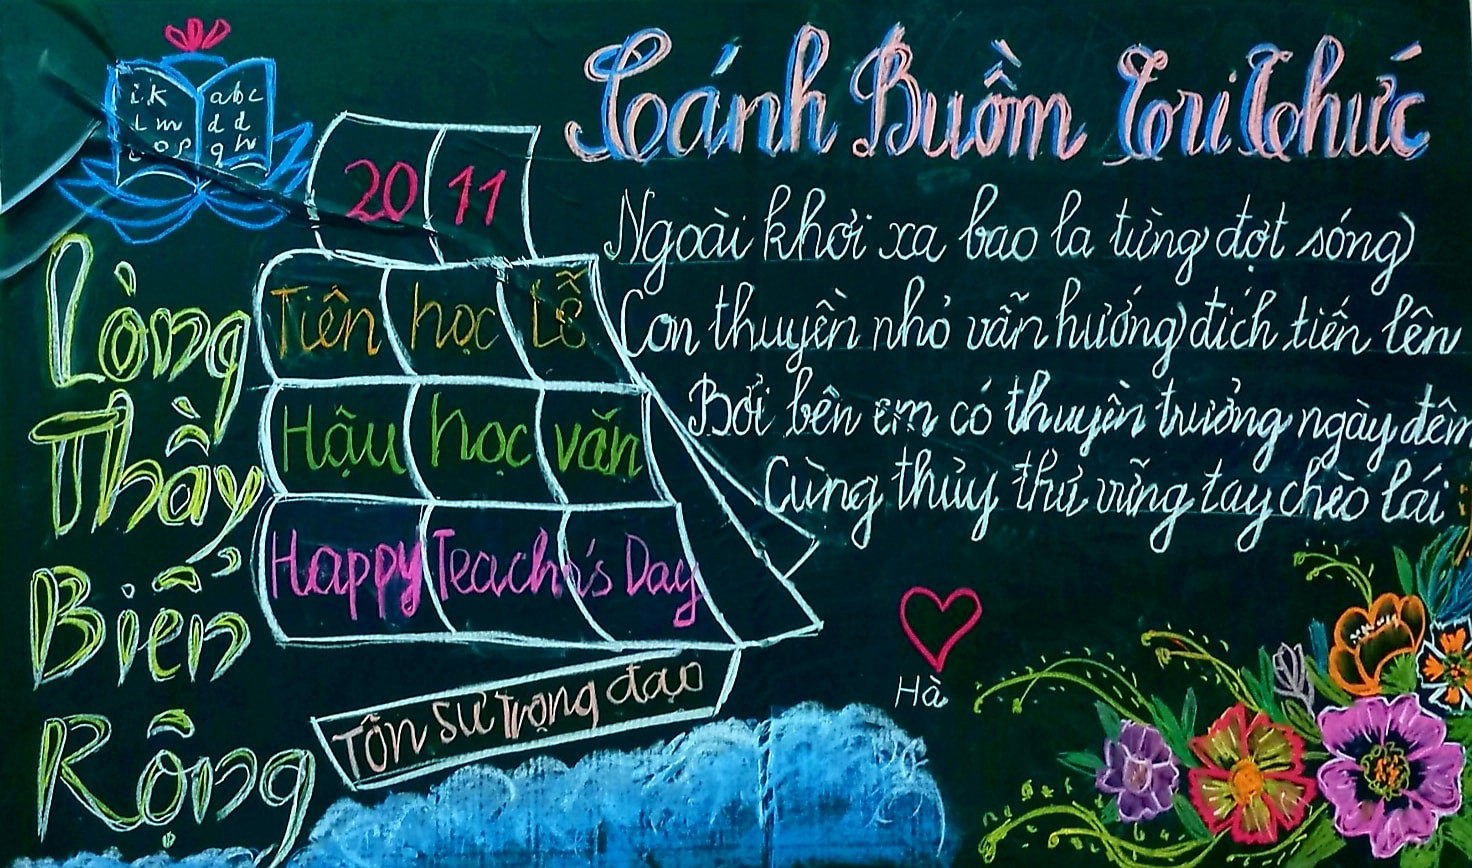 Cánh Buồm Tri Thức
i k
l m
abc
d d
20 11
Lòng
Thầy
Biển
Rộng
Tiên học Lễ
Hậu học văn
Happy Teacher's Day
Tôn sư trọng đạo
Ngoài khơi xa bao la từng đợt sóng
Con thuyền nhỏ vẫn hướng đích tiến lên
Bởi bên em có thuyền trưởng ngày đêm
Cùng thủy thủ vững tay chèo lái
Hà